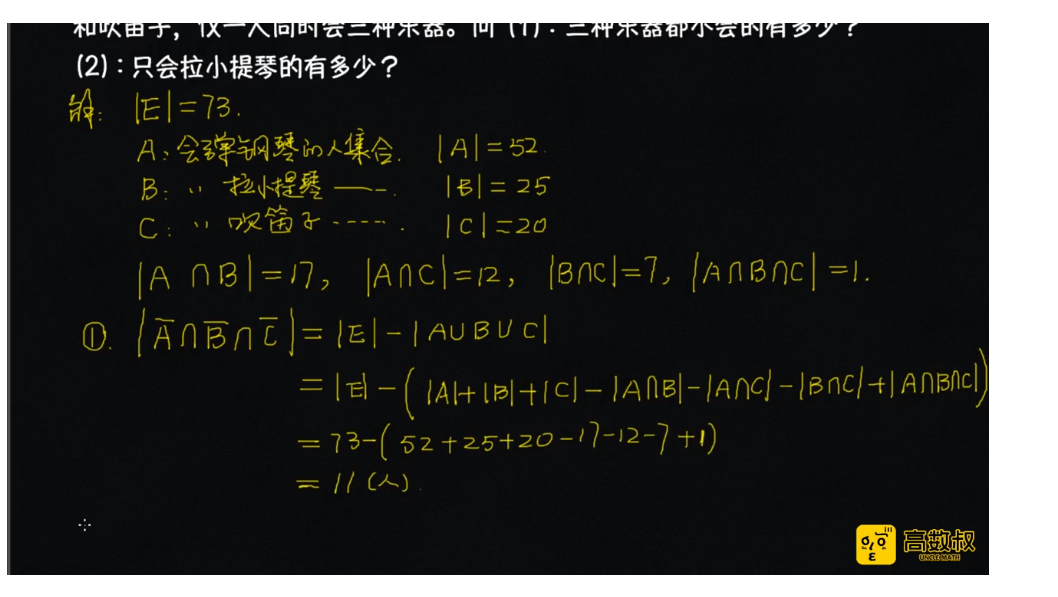 和吹笛子，仅一人同时会三种乐器。问（1）：三种乐器都不会的有多少？
(2)：只会拉小提琴的有多少？
解: |E|=73.
A: 会弹钢琴的人集合. |A|=52.
B: 〃 拉小提琴 ——. |B|=25
C: 〃 吹笛子 ----- . |C|=20
|A∩B|=17, |A∩C|=12, |B∩C|=7, |A∩B∩C|=1.
①. |A̅∩B̅∩C̅|=|E|-|A∪B∪C|
=|E|-(|A|+|B|+|C|-|A∩B|-|A∩C|-|B∩C|+|A∩B∩C|)
=73-(52+25+20-17-12-7+1)
=11(人).
高数叔
UNCLE MATH